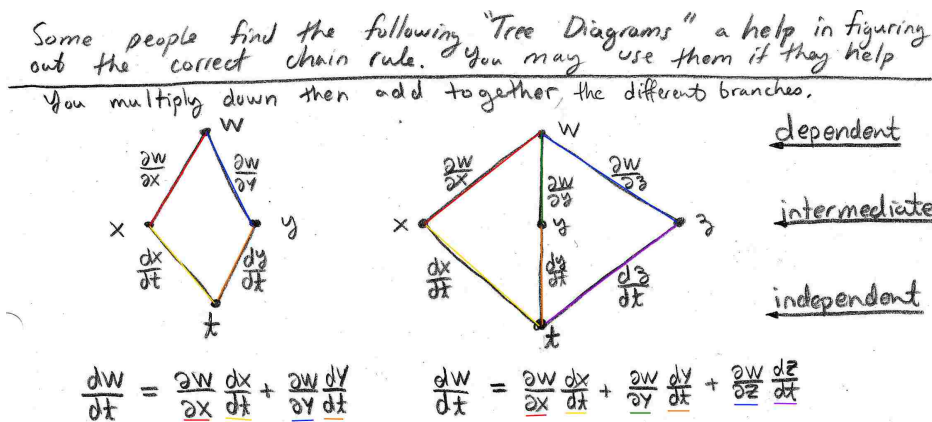 Some people find the following "Tree Diagrams" a help in figuring
out the correct chain rule. You may use them if they help
You multiply down then add together the different branches.
w w dependent
∂w/∂x ∂w/∂y ∂w/∂x ∂w/∂y ∂w/∂z
x y x y z intermediate
dx/dt dy/dt dx/dt dy/dt dz/dt
t t independent
dw/dt = ∂w/∂x dx/dt + ∂w/∂y dy/dt dw/dt = ∂w/∂x dx/dt + ∂w/∂y dy/dt + ∂w/∂z dz/dt